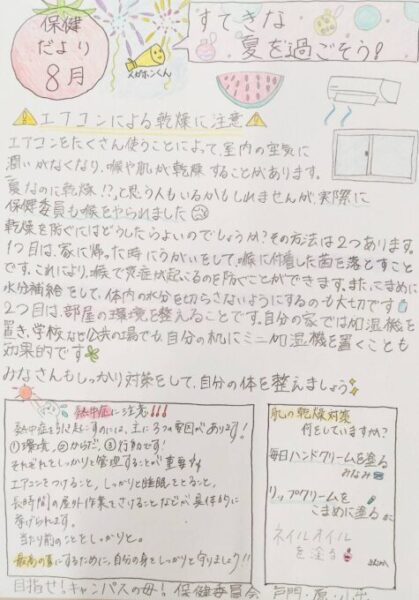 保健
だより
8月
メガホンくん
すてきな
夏を過ごそう!
エアコンによる乾燥に注意
エアコンをたくさん使うことによって、室内の空気に
潤いがなくなり、喉や肌が乾燥することがあります。
夏なのに乾燥!?と思う人もいるかもしれませんが、実際に
保健委員も喉をやられました
乾燥を防ぐにはどうしたらよいのでしょうか?その方法は2つあります。
1つ目は、家に帰った時にうがいをして、喉に付着した菌を落とすこと
です。これにより、喉で炎症が起こるのを防ぐことができます。また、こまめに
水分補給をして、体内の水分を切らさないようにするのも大切です
2つ目は、部屋の環境を整えることです。自分の家では加湿機を
置き、学校など公共の場でも、自分の机にミニ加湿機を置くことも
効果的です
みなさんもしっかり対策をして、自分の体を整えましょう
熱中症に注意!!!
熱中症を引き起こすのには、主に3つの要因があります!
①環境、②からだ、③行動です!
それぞれをしっかりと管理することが重要!!
エアコンをつけること、しっかりと睡眠をとること、
長時間の屋外作業をさけることなどが具体的に
挙げられます。
当たり前のことをしっかりと。
最高の夏にするために、自分の身をしっかりと守りましょう!!
肌の乾燥対策
何をしていますか?
毎日ハンドクリームを塗る
みなみ
リップクリームを
こまめに塗る
ネイルオイル
を塗る
目指せ!キャンパスの母! 保健委員会